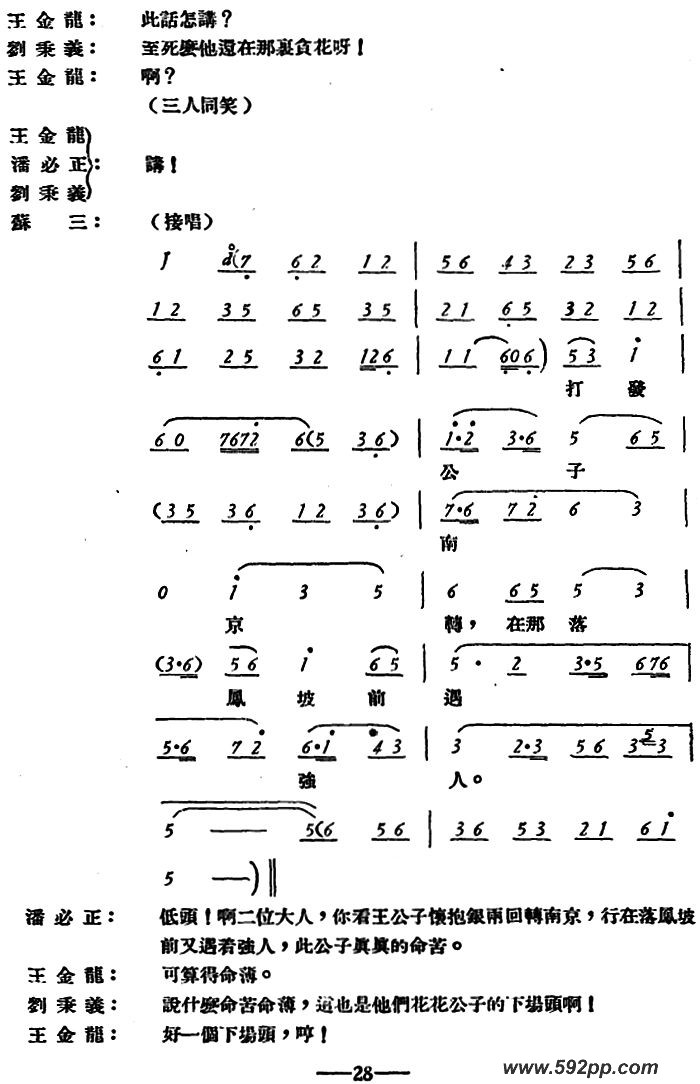 王金龍： 此話怎講？
劉秉義： 至死麽他還在那裏貪花呀！
王金龍： 啊？
（三人同笑）
王金龍
潘必正： 講！
劉秉義
蘇 三： （接唱）
1 (7 6 2 1 2 | 5 6 4 3 2 3 5 6 |
1 2 3 5 6 5 3 5 | 2 1 6 5 3 2 1 2 |
6 1 2 5 3 2 1 2 6 | 1 1 6 0 6 ) 5 3 i |
打 發
6 0 7 6 7 2 6 (5 3 6 ) | i·2 3·6 5 6 5 |
公 子
(3 5 3 6 1 2 3 6 ) | 7·6 7 2 6 3 |
南
0 i 3 5 | 6 6 5 5 3 |
京 轉，在那 落
(3·6) 5 6 i 6 5 | 5 · 2 3·5 6 7 6
鳳 坡 前 遇
5·6 7 2 6·i 4 3 | 3 2·3 5 6 3 5 3
強 人。
5 — 5(6 5 6 | 3 6 5 3 2 1 6 i
5 —)‖
潘必正： 低頭！啊二位大人，你看王公子懷抱銀兩回轉南京，行在落鳳坡
前又遇着強人，此公子眞眞的命苦。
王金龍： 可算得命薄。
劉秉義： 說什麽命苦命薄，這也是他們花花公子的下場頭啊！
王金龍： 好一個下場頭，哼！
—28—
www.592pp.com